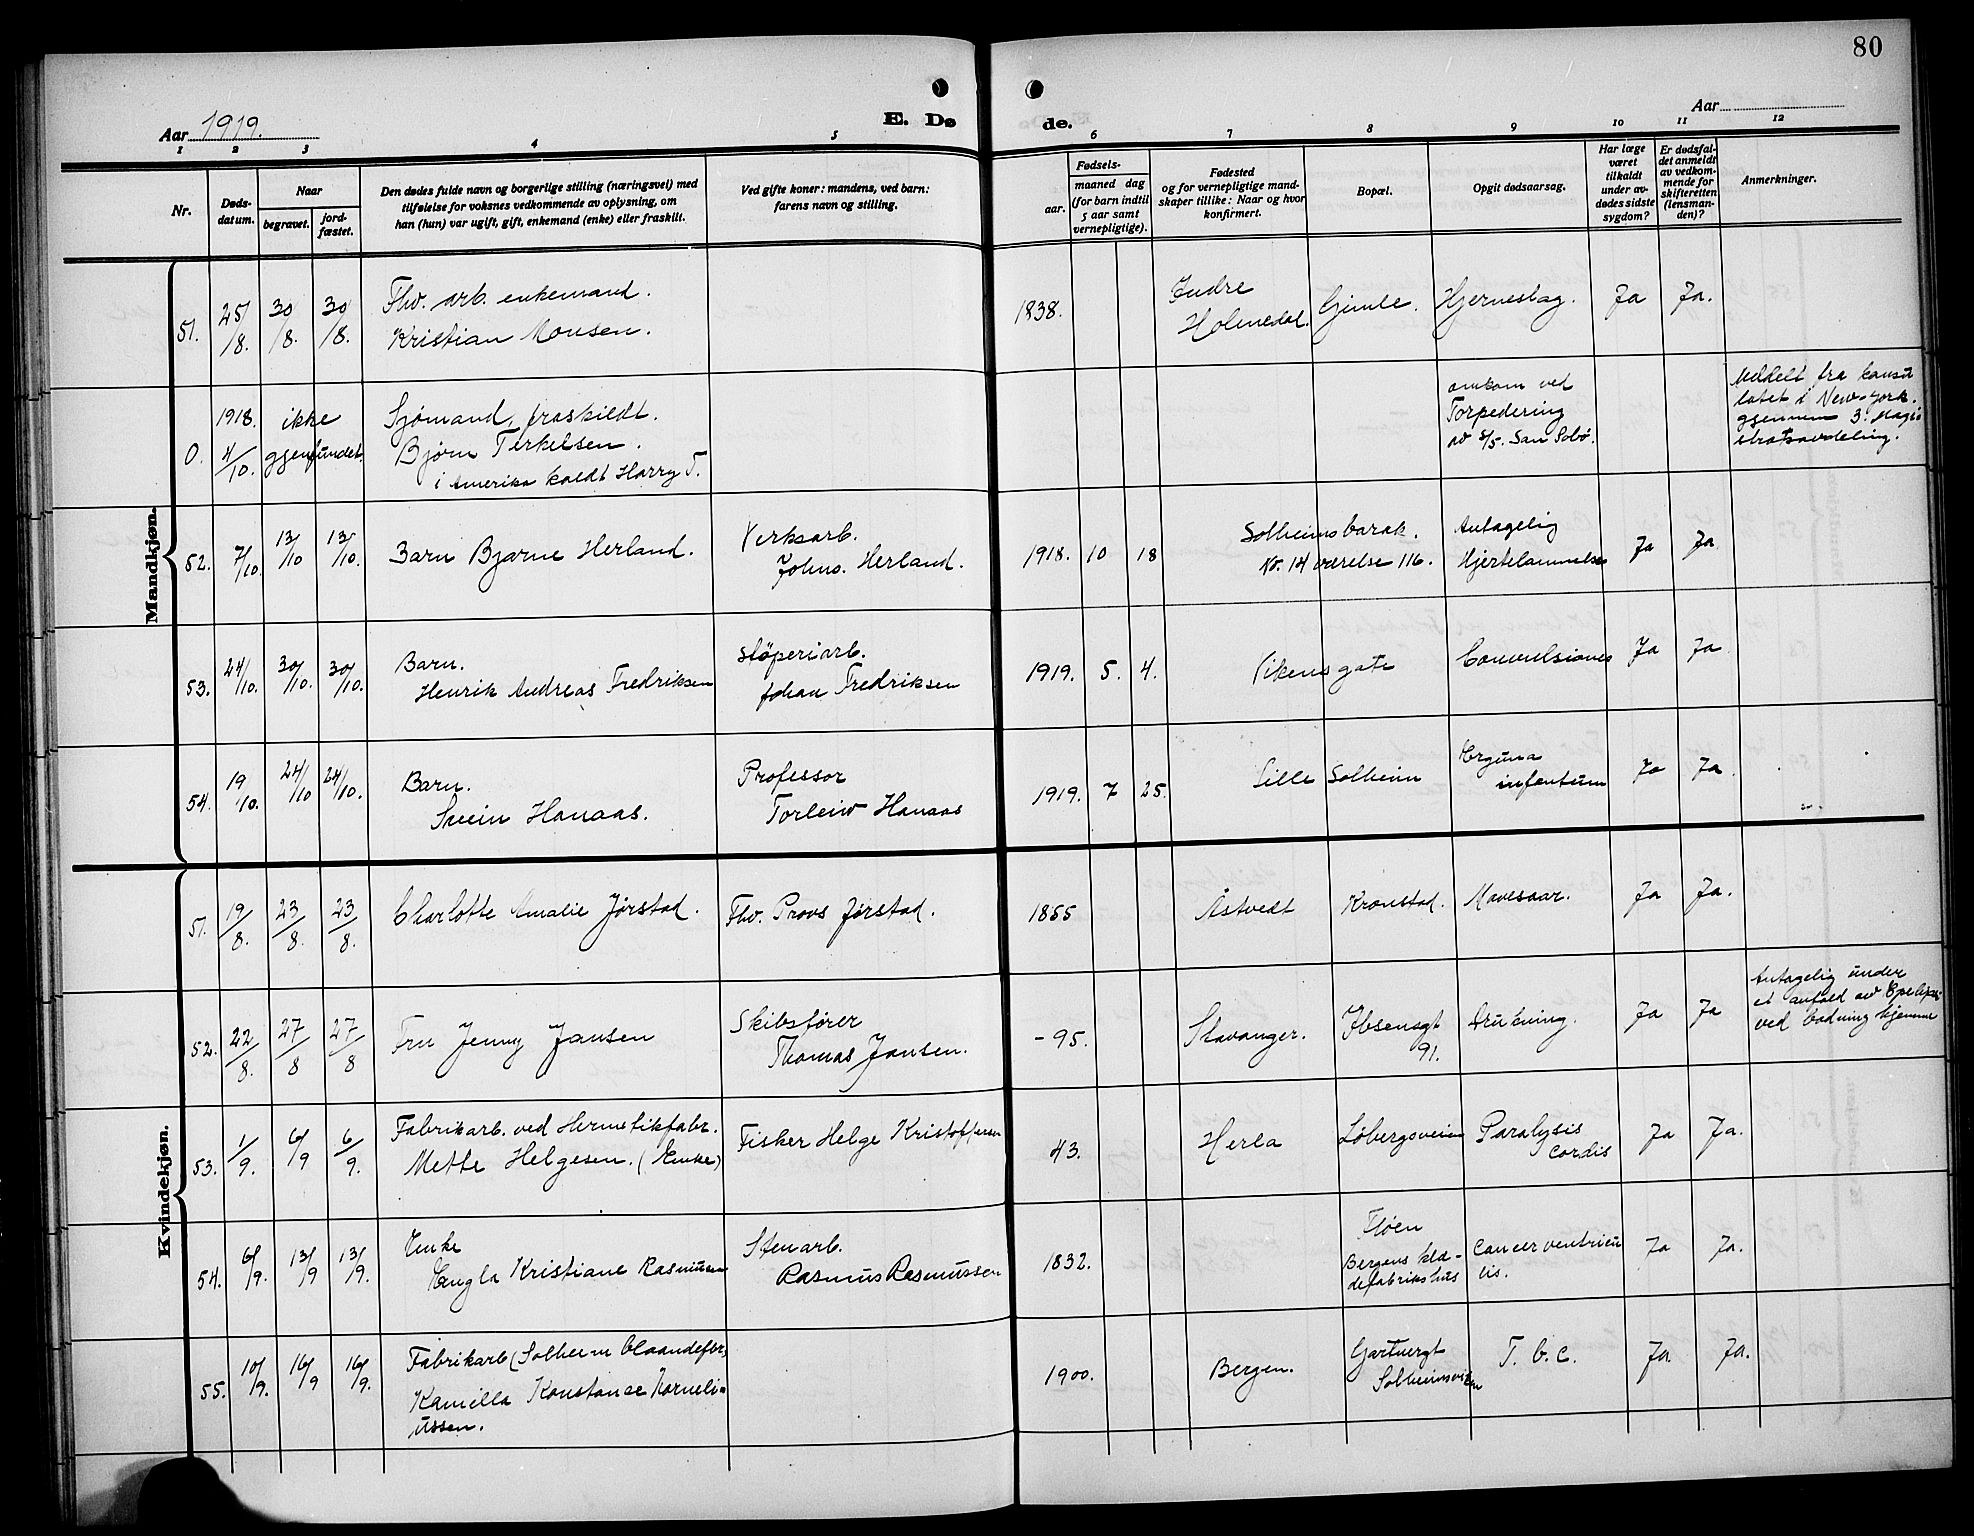 80
Aar 1919.
E. Dø
de.
Aar
1 2 3 4 5 6 7 8 9 10 11 12
Nr.
Døds-
datum.
Naar
begravet.
jord-
fæstet.
Den dødes fulde navn og borgerlige stilling (næringsvei) med
tilføielse for voksnes vedkommende av oplysning, om
han (hun) var ugift, gift, enkemand (enke) eller fraskilt.
Ved gifte koner: mandens, ved barn:
farens navn og stilling.
Fødsels-
aar.
maaned dag
(for barn indtil
5 aar samt
vernepligtige).
Fødested
og for vernepligtige mand-
skaper tillike: Naar og hvor
konfirmert.
Bopæl.
Opgit dødsaarsag.
Har læge
været
tilkaldt
under av-
dødes sidste
sygdom?
Er dødsfal-
det anmeldt
av vedkom-
mende for
skifteretten
(lensman-
den)?
Anmerkninger.
Mandkjøn.
51. 25/8. 30/8. 30/8.
Fhv. arb. enkemand.
Kristian Monsen.
1838.
Indre
Holmedal.
Gimle.
Hjerneslag.
Ja Ja.
0. 1918. 4/10.
ikke
gjenfundet.
Sjømand, fraskildt.
Bjørn Terkelsen.
i Amerika kaldt Harry T.
omkom ved
Torpedering
av s/s. San Sobø.
Meddelt fra konsu
latet i New-York.
gjennem 3. Magi
stratsavdeling.
52. 7/10. 13/10 13/10.
Barn Bjarne Herland.
Verksarb.
Johns. Herland.
1918. 10 18
Solheimsbarak.
Nr. 14 værelse 116.
Antagelig
Hjertelammelse
Ja Ja
53. 24/10. 30/10. 30/10.
Barn.
Henrik Andreas Fredriksen
Støperiarb.
Johan Fredriksen
1919. 5. 4.
Vikens gate
Convulsiones
Ja Ja
54. 19/10. 24/10 24/10.
Barn.
Svein Hanaas.
Professor
Torleiv Hanaas
1919. 7 25.
Lille Solheim
infantum
Ja Ja
Kvindekjøn.
51. 19/8. 23/8. 23/8.
Charlotte Amalie Jørstad.
Fhv. Provs Jørstad.
1855
Åstvedt
Kronstad.
Mavesaar.
Ja Ja.
52. 22/8. 27/8 27/8
Fru Jenny Jansen
Skibsfører
Thomas Jansen.
-95.
Stavanger.
Ibsensgt
91.
Drukning.
Ja Ja
Antagelig under
et anfald av Epelepsi
ved badning hjemme
53. 1/9. 6/9 6/9.
Fabrikarb. ved Hermetikfabr.
Mette Helgesen. (Enke)
Fisker Helge Kristoffersen
43.
Herla
Løbergsveien
Paralysis
cordis
Ja Ja.
54. 6/9. 13/9 13/9.
Enke
Engla Kristiane Rasmussen
Stenarb.
Rasmus Rasmussen
1832.
Fløen
Bergens klæ-
defabriks hus
Cancer ventricu
lis.
Ja Ja.
55. 10/9. 16/9 16/9.
Fabrikarb (Solheim blaandefbr.)
Kamilla Konstanse Korneli-
ussen.
1900.
Bergen.
Gartnergt
Solheimsviken
T. b. c.
Ja. Ja.